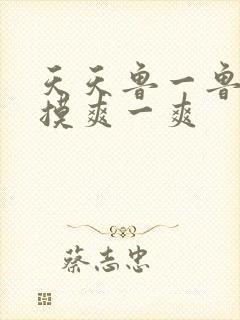 天天鲁一鲁
摸爽一爽
蔡志忠